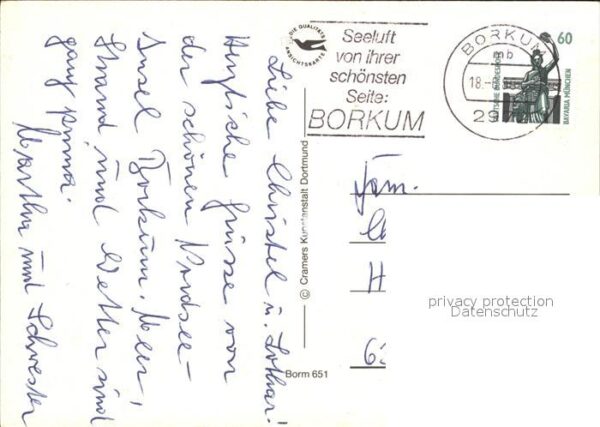 Liebe Christel u. Lothar!
Herzliche Grüsse von
der schönen Nordsee-
Insel Borkum. Meer,
Strand und Wetter sind
ganz prima.
Martha und Schwester
DIE QUALITÄTS
ANSICHTSKARTE
Seeluft
von ihrer
schönsten
Seite:
BORKUM
BORKUM
mb
18.
29
60
DEUTSCHE BUNDESPOST
BAVARIA MÜNCHEN
© Cramers Kunstanstalt Dortmund
Borm 651
Fam.
H
6
privacy protection
Datenschutz